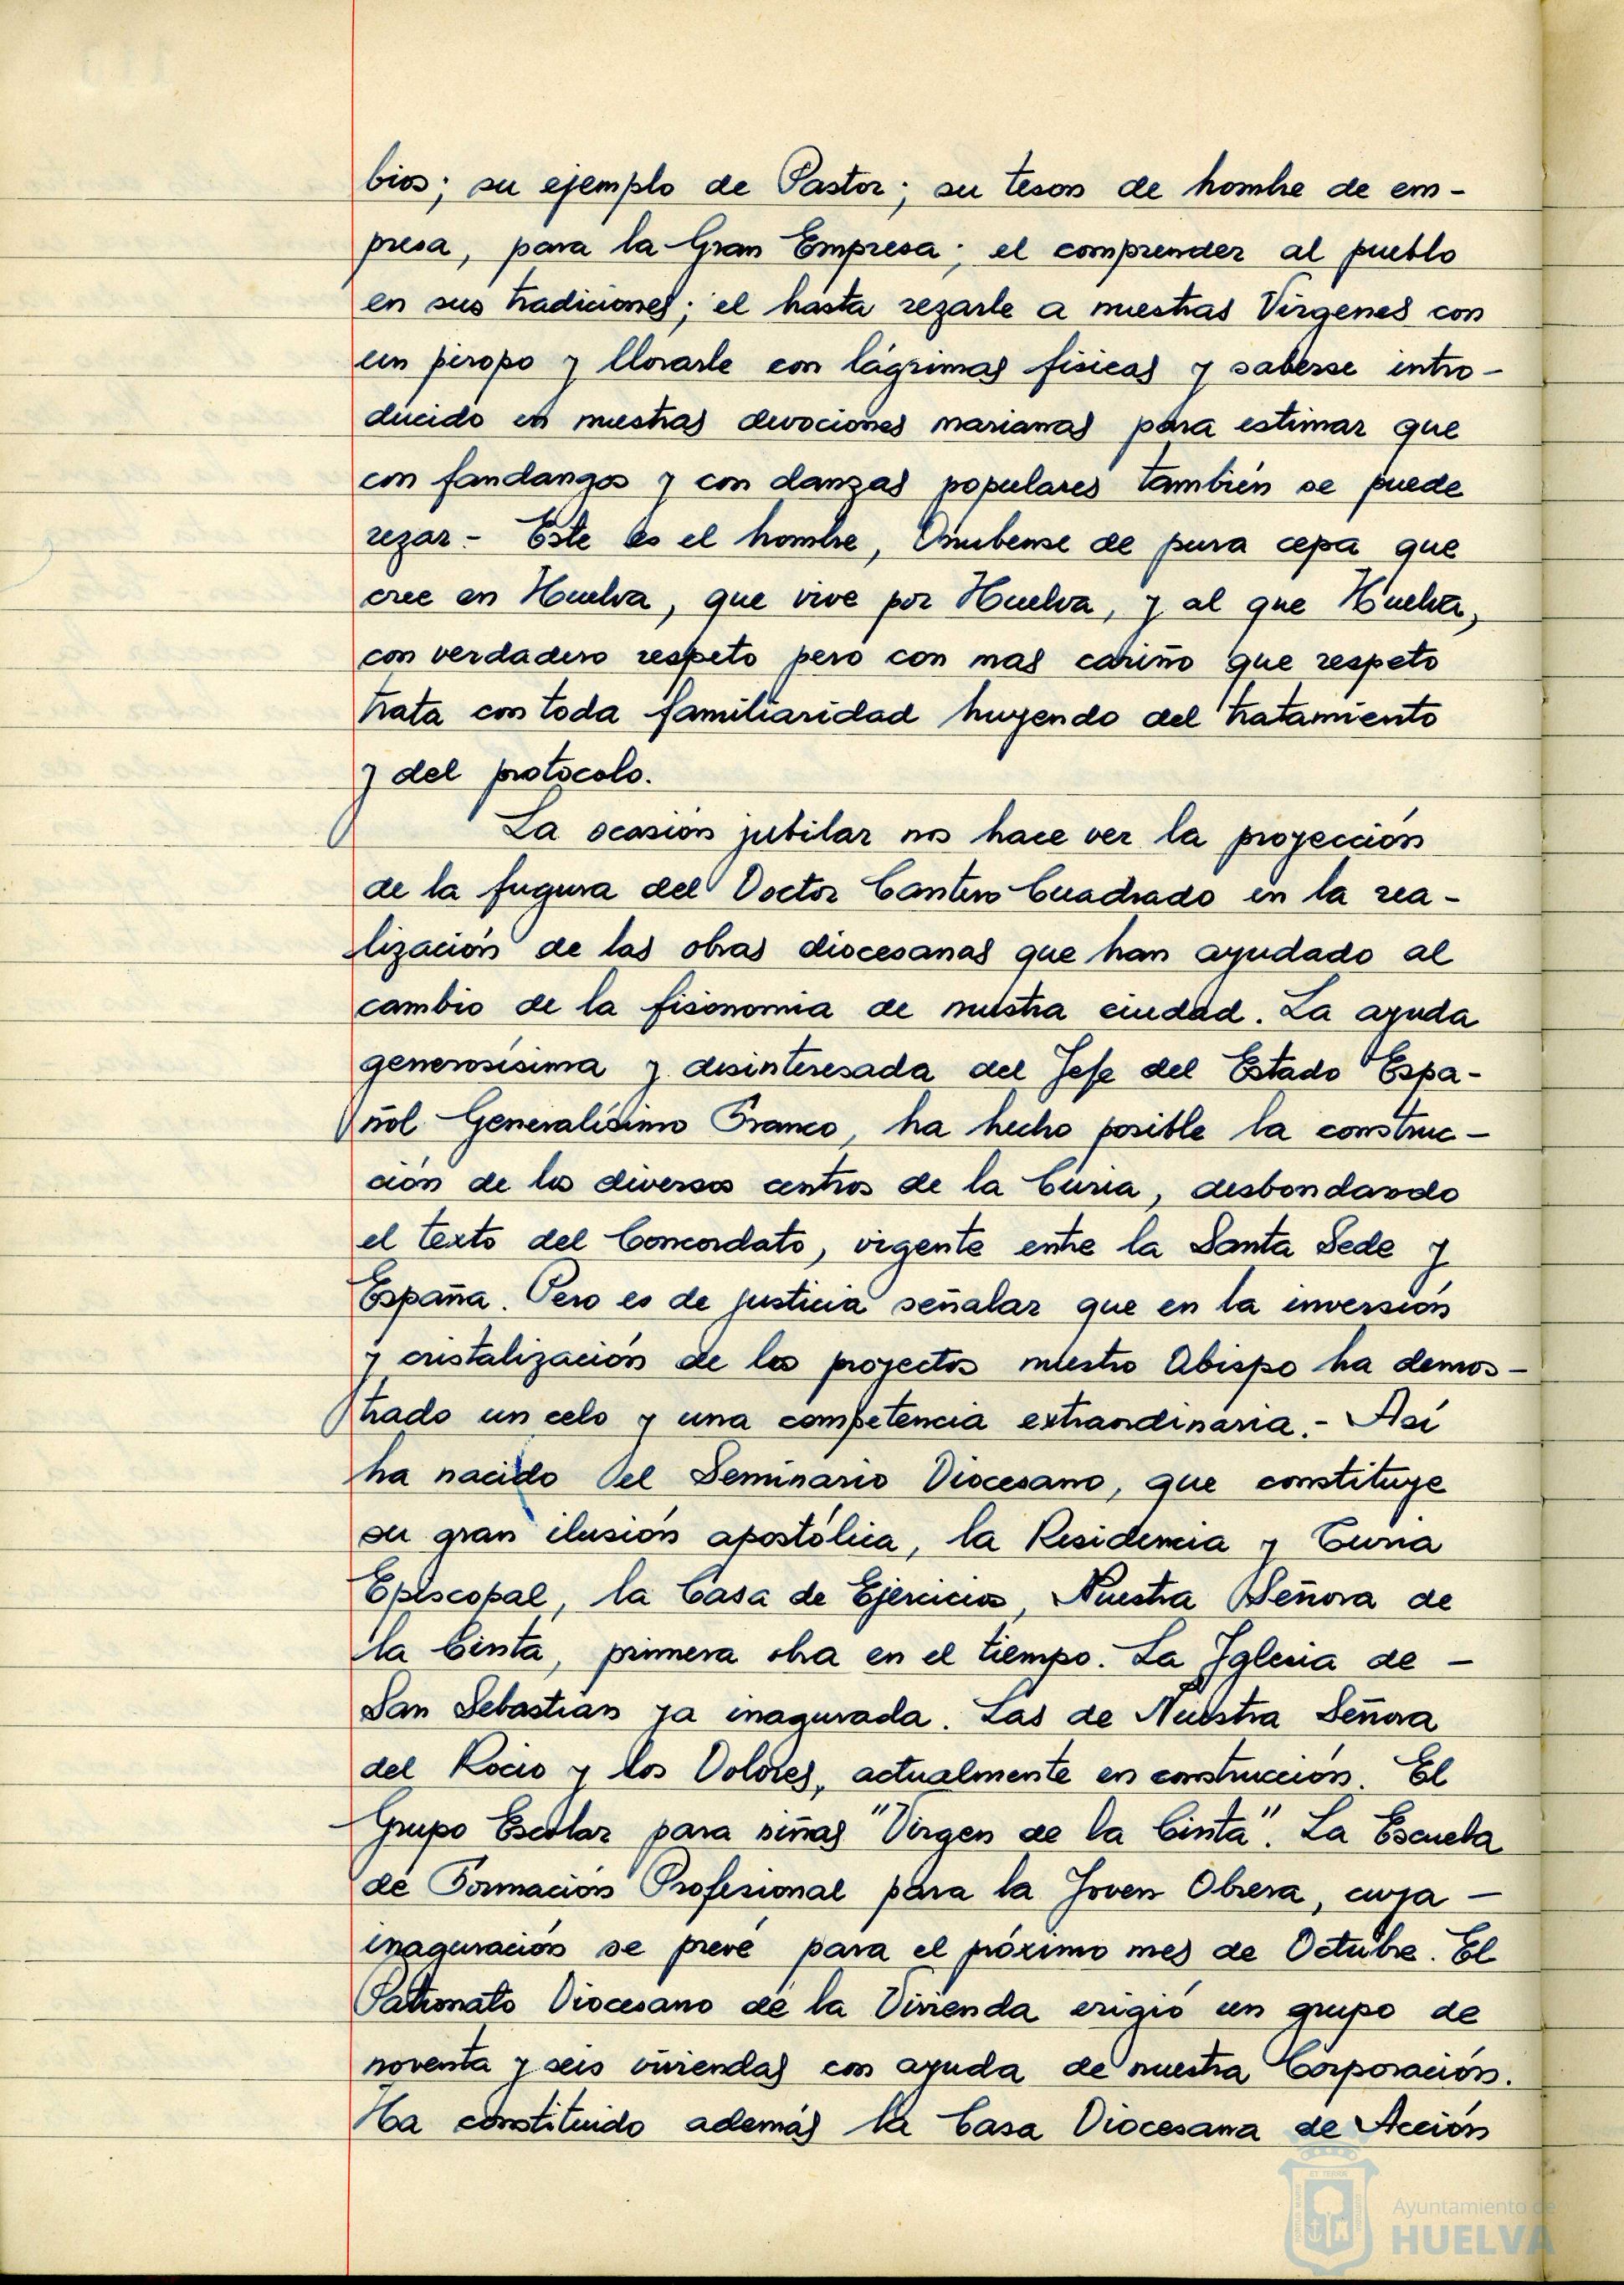 bios; su ejemplo de Pastor; su teson de hombre de em-
presa, para la Gran Empresa; el comprender al pueblo
en sus tradiciones; el hasta rezarle a nuestras Virgenes con
un piropo y llorarle con lágrimas fisicas y saberse intro-
ducido en nuestras devociones marianas para estimar que
con fandangos y con danzas populares también se puede
rezar.- Este es el hombre, Onubense de pura cepa que
cree en Huelva, que vive por Huelva, y al que Huelva,
con verdadero respeto pero con mas cariño que respeto
trata con toda familiaridad huyendo del tratamiento
y del protocolo.
La ocasión jubilar nos hace ver la proyección
de la fugura del Doctor Cantero Cuadrado en la rea-
lización de las obras diocesanas que han ayudado al
cambio de la fisonomia de nuestra ciudad. La ayuda
generosísima y desinteresada del Jefe del Estado Espa-
ñol Generalísimo Franco, ha hecho posible la construc-
ción de los diversos centros de la Curia, desbondando
el texto del Concordato, vigente entre la Santa Sede y
España. Pero es de justicia señalar que en la inversión
y cristalización de los proyectos nuestro Obispo ha demos-
trado un celo y una competencia extraordinaria.- Así
ha nacido el Seminario Diocesano, que constituye
su gran ilusión apostólica, la Residencia y Curia
Episcopal, la Casa de Ejercicios, Nuestra Señora de
la Cinta, primera obra en el tiempo. La Iglesia de -
San Sebastián ya inagurada. Las de Nuestra Señora
del Rocio y los Dolores, actualmente en construcción. El
Grupo Escolar para niñas "Virgen de la Cinta". La Escuela
de Formación Profesional para la Joven Obrera, cuya -
inaguración se prevé para el próximo mes de Octubre. El
Patronato Diocesano de la Vivienda erigió un grupo de
noventa y seis viviendas con ayuda de nuestra Corporación.
Ha constituido además la Casa Diocesana de Acción
Ayuntamiento de
HUELVA